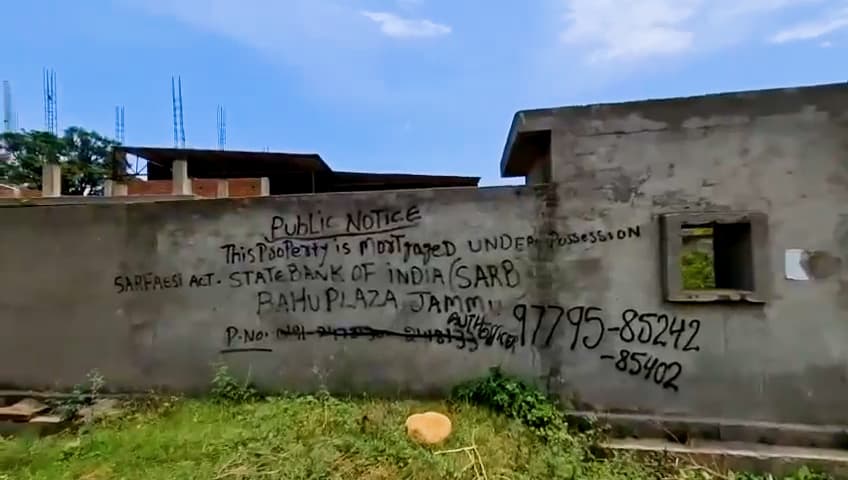 PUBLIC NOTICE
This PROPeRty is MORTgageD UNDER POSSESSION
SARFAESI ACT. STATE BANK OF INDIA (SARB
BAHU PLAZA JAMMU
P.NO.
AUTH. OFFICER 97795-85242
-85402